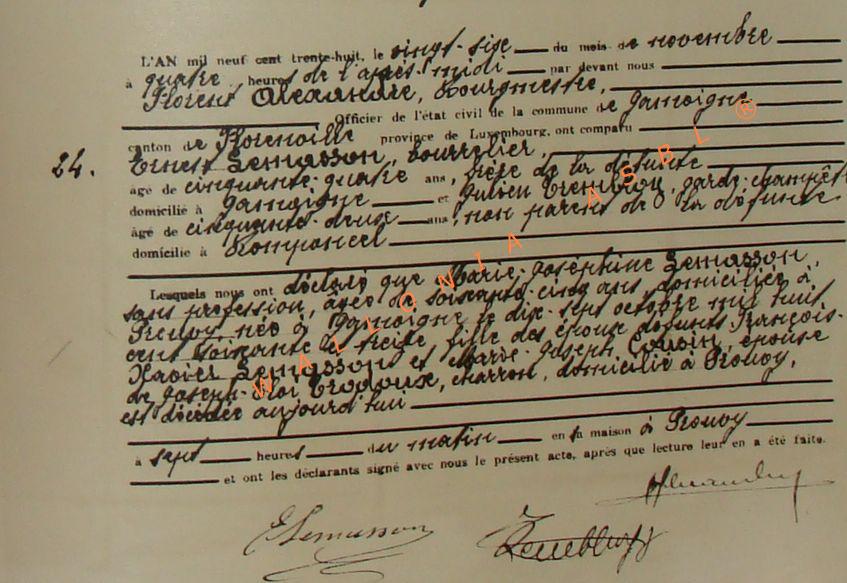 L'AN mil neuf cent trente-huit, le vingt-six du mois de novembre
à quatre heures de l'après-midi par devant nous
Florent Alexandre, Bourgmestre,
Officier de l'état civil de la commune de Jamoigne
canton de Florenville province de Luxembourg, ont comparu
24. Ernest Lemasson, bourrelier,
âgé de cinquante-quatre ans, frère de la défunte
domicilié à Jamoigne et Julien garde-champêt
âgé de cinquante-deux ans, non parent de la défunte
domicilié à Romponcel
Lesquels nous ont déclaré que Marie-Joséphine Lemasson,
sans profession, âgée de soixante-cinq ans, domiciliée à
Prouvy, née à Jamoigne le dix-sept octobre mil huit
cent soixante et treize, fille des époux défunts François-
Xavier Lemasson et Marie-Joseph Cousin, épouse
de Joseph-Eloi charron, domicilié à Prouvy,
est décédée aujourd'hui
à sept heures du matin en sa maison à Prouvy
et ont les déclarants signé avec nous le présent acte, après que lecture leur en a été faite.
ELemasson
WALLONIA ASBL ®